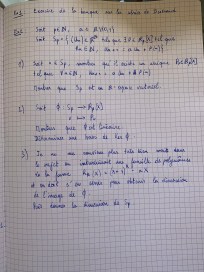 Ex1 Exercice de la banque sur les séries de
Ex1 Soit p∈ℕ, a∈ℝ\{0,1}
Soit Sp = { (un) ∈ ℝ^ℕ tels que ∃ P ∈ ℝp[X] tel que
∀n∈ℕ, un+1 = a un + P(n) }
Soit u ∈ Sp, montrer qu'il existe un unique P∈ℝp[X]
tel que ∀n∈ℕ, un+1 = a un + P(n)
Montrer que Sp est un ℝ-espace vectoriel.
2) Soit Φ : Sp → ℝp[X]
u ↦ Pu
Montrer que Φ est linéaire.
Déterminer une base de Ker Φ.
3) Je ne me souviens plus très bien mais dans
le sujet on introduisait une famille de polynômes
de la forme Rk(X) = (X+1)^k - aX
et on doit s'en servir pour obtenir la dimension
de l'image de Φ.
Puis donner la dimension de Sp.